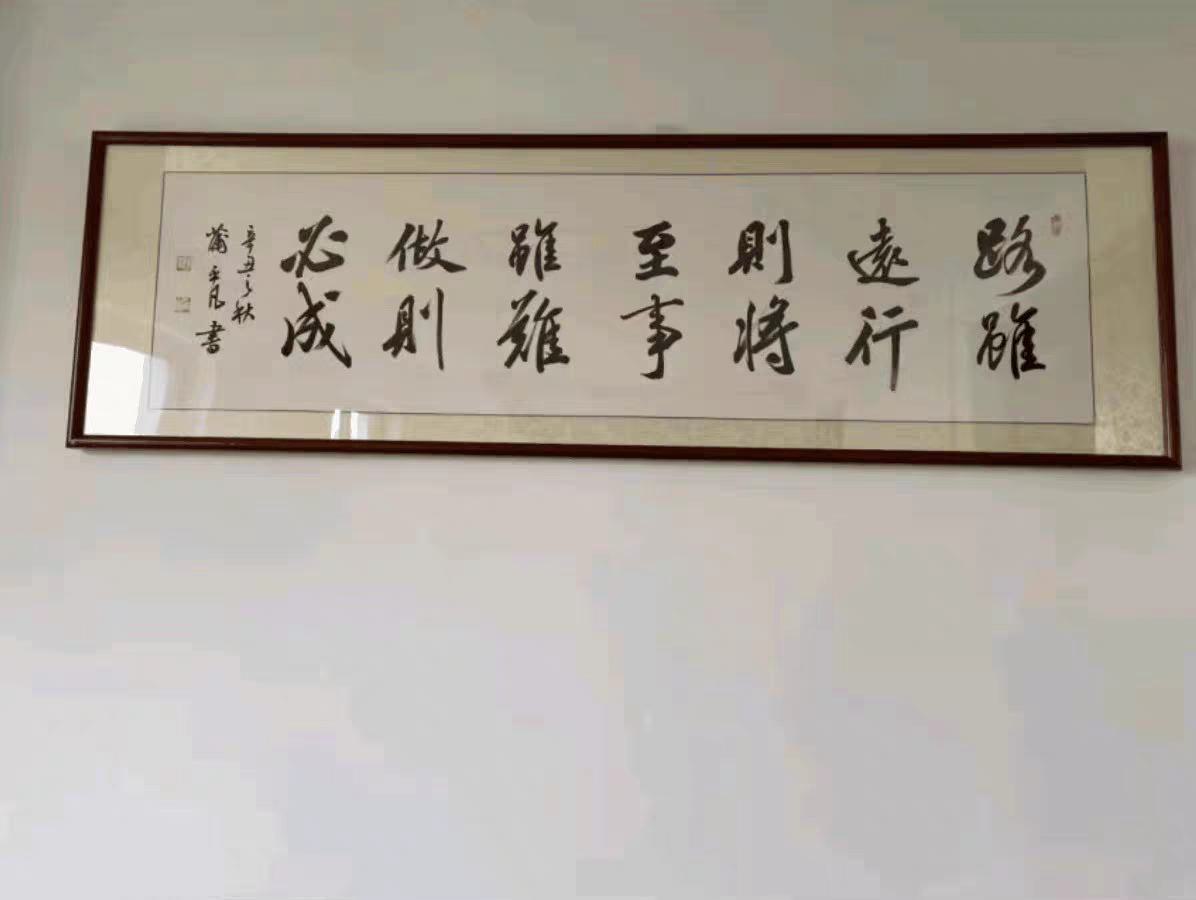 路雖
遠行
則將
至事
雖難
做則
必成
辛丑之秋
蒲平凡書